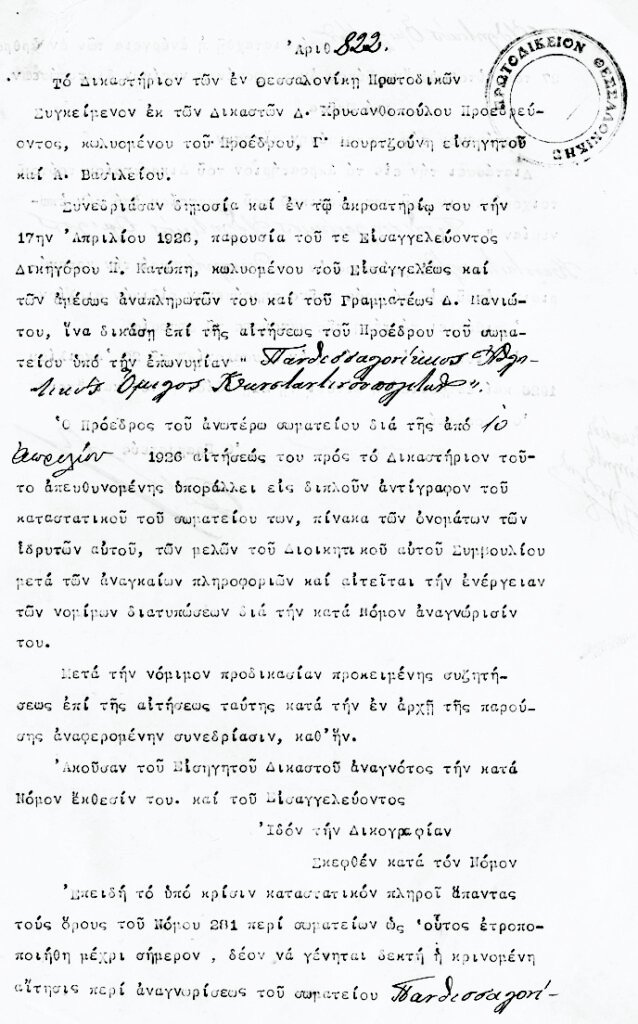 Ἀριθ 822.
ΠΡΩΤΟΔΙΚΕΙΟΝ ΘΕΣΣΑΛΟΝΙΚΗΣ
Τό Δικαστήριον τῶν ἐν Θεσσαλονίκῃ Πρωτοδικῶν
Συγκείμενον ἐκ τῶν Δικαστῶν Δ. Χρυσανθοπούλου Προεδρεύ-
οντος, κωλυομένου τοῦ Προέδρου, Γ. Μουρτζούνη εἰσηγητοῦ
καί Α. Βασιλείου.
Συνεδριάσαν δημοσίᾳ καί ἐν τῷ ἀκροατηρίῳ του τήν
17ην Ἀπριλίου 1926, παρουσίᾳ τοῦ τε Εἰσαγγελεύοντος
Δικηγόρου Π. Κατώπη, κωλυομένου τοῦ Εἰσαγγελέως καί
τῶν ἀμέσως ἀναπληρωτῶν του καί τοῦ Γραμματέως Δ. Μανιώ-
του, ἵνα δικάσῃ ἐπί τῆς αἰτήσεως τοῦ Προέδρου τοῦ σωμα-
τείου ὑπό τήν ἐπωνυμίαν " Πανθεσσαλονίκιος Ἀθλη-
τικός Ὅμιλος Κωνσταντινουπολιτῶν ".
Ὁ Πρόεδρος τοῦ ἀνωτέρω σωματείου διά τῆς ἀπό 10
Ἀπριλίου 1926 αἰτήσεώς του πρός τό Δικαστήριον τοῦ-
το ἀπευθυνομένης ὑποβάλλει εἰς διπλοῦν ἀντίγραφον τοῦ
καταστατικοῦ τοῦ σωματείου των, πίνακα τῶν ὀνομάτων τῶν
ἱδρυτῶν αὐτοῦ, τῶν μελῶν τοῦ Διοικητικοῦ αὐτοῦ Συμβουλίου
μετά τῶν ἀναγκαίων πληροφοριῶν καί αἰτεῖται τήν ἐνέργειαν
τῶν νομίμων διατυπώσεων διά τήν κατά Νόμον ἀναγνώρισίν
του.
Μετά τήν νόμιμον προδικασίαν προκειμένης συζητή-
σεως ἐπί τῆς αἰτήσεως ταύτης κατά τήν ἐν ἀρχῇ τῆς παρού-
σης ἀναφερομένην συνεδρίασιν, καθ'ἥν.
Ἀκοῦσαν τοῦ Εἰσηγητοῦ Δικαστοῦ ἀναγνότος τήν κατά
Νόμον ἔκθεσίν του. καί τοῦ Εἰσαγγελεύοντος
Ἰδόν τήν Δικογραφίαν
Σκεφθέν κατά τόν Νόμον
Ἐπειδή τό ὑπό κρίσιν καταστατικόν πληροῖ ἅπαντας
τούς ὅρους τοῦ Νόμου 281 περί σωματείων ὡς οὗτος ἐτροπο-
ποιήθη μέχρι σήμερον , δέον νά γένηται δεκτή ἡ κρινομένη
αἴτησις περί ἀναγνωρίσεως τοῦ σωματείου Πανθεσσαλονί-